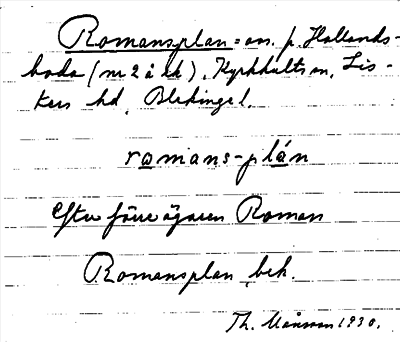 Romansplan = ä. p. Hollands-
boda (nr 2 å ek), Kyrkhults sn, Lis-
ters hd, Blekinge l.
romans-plán
efter förre ägaren Roman
Romansplan, bek.
Th. Månsson 1930.